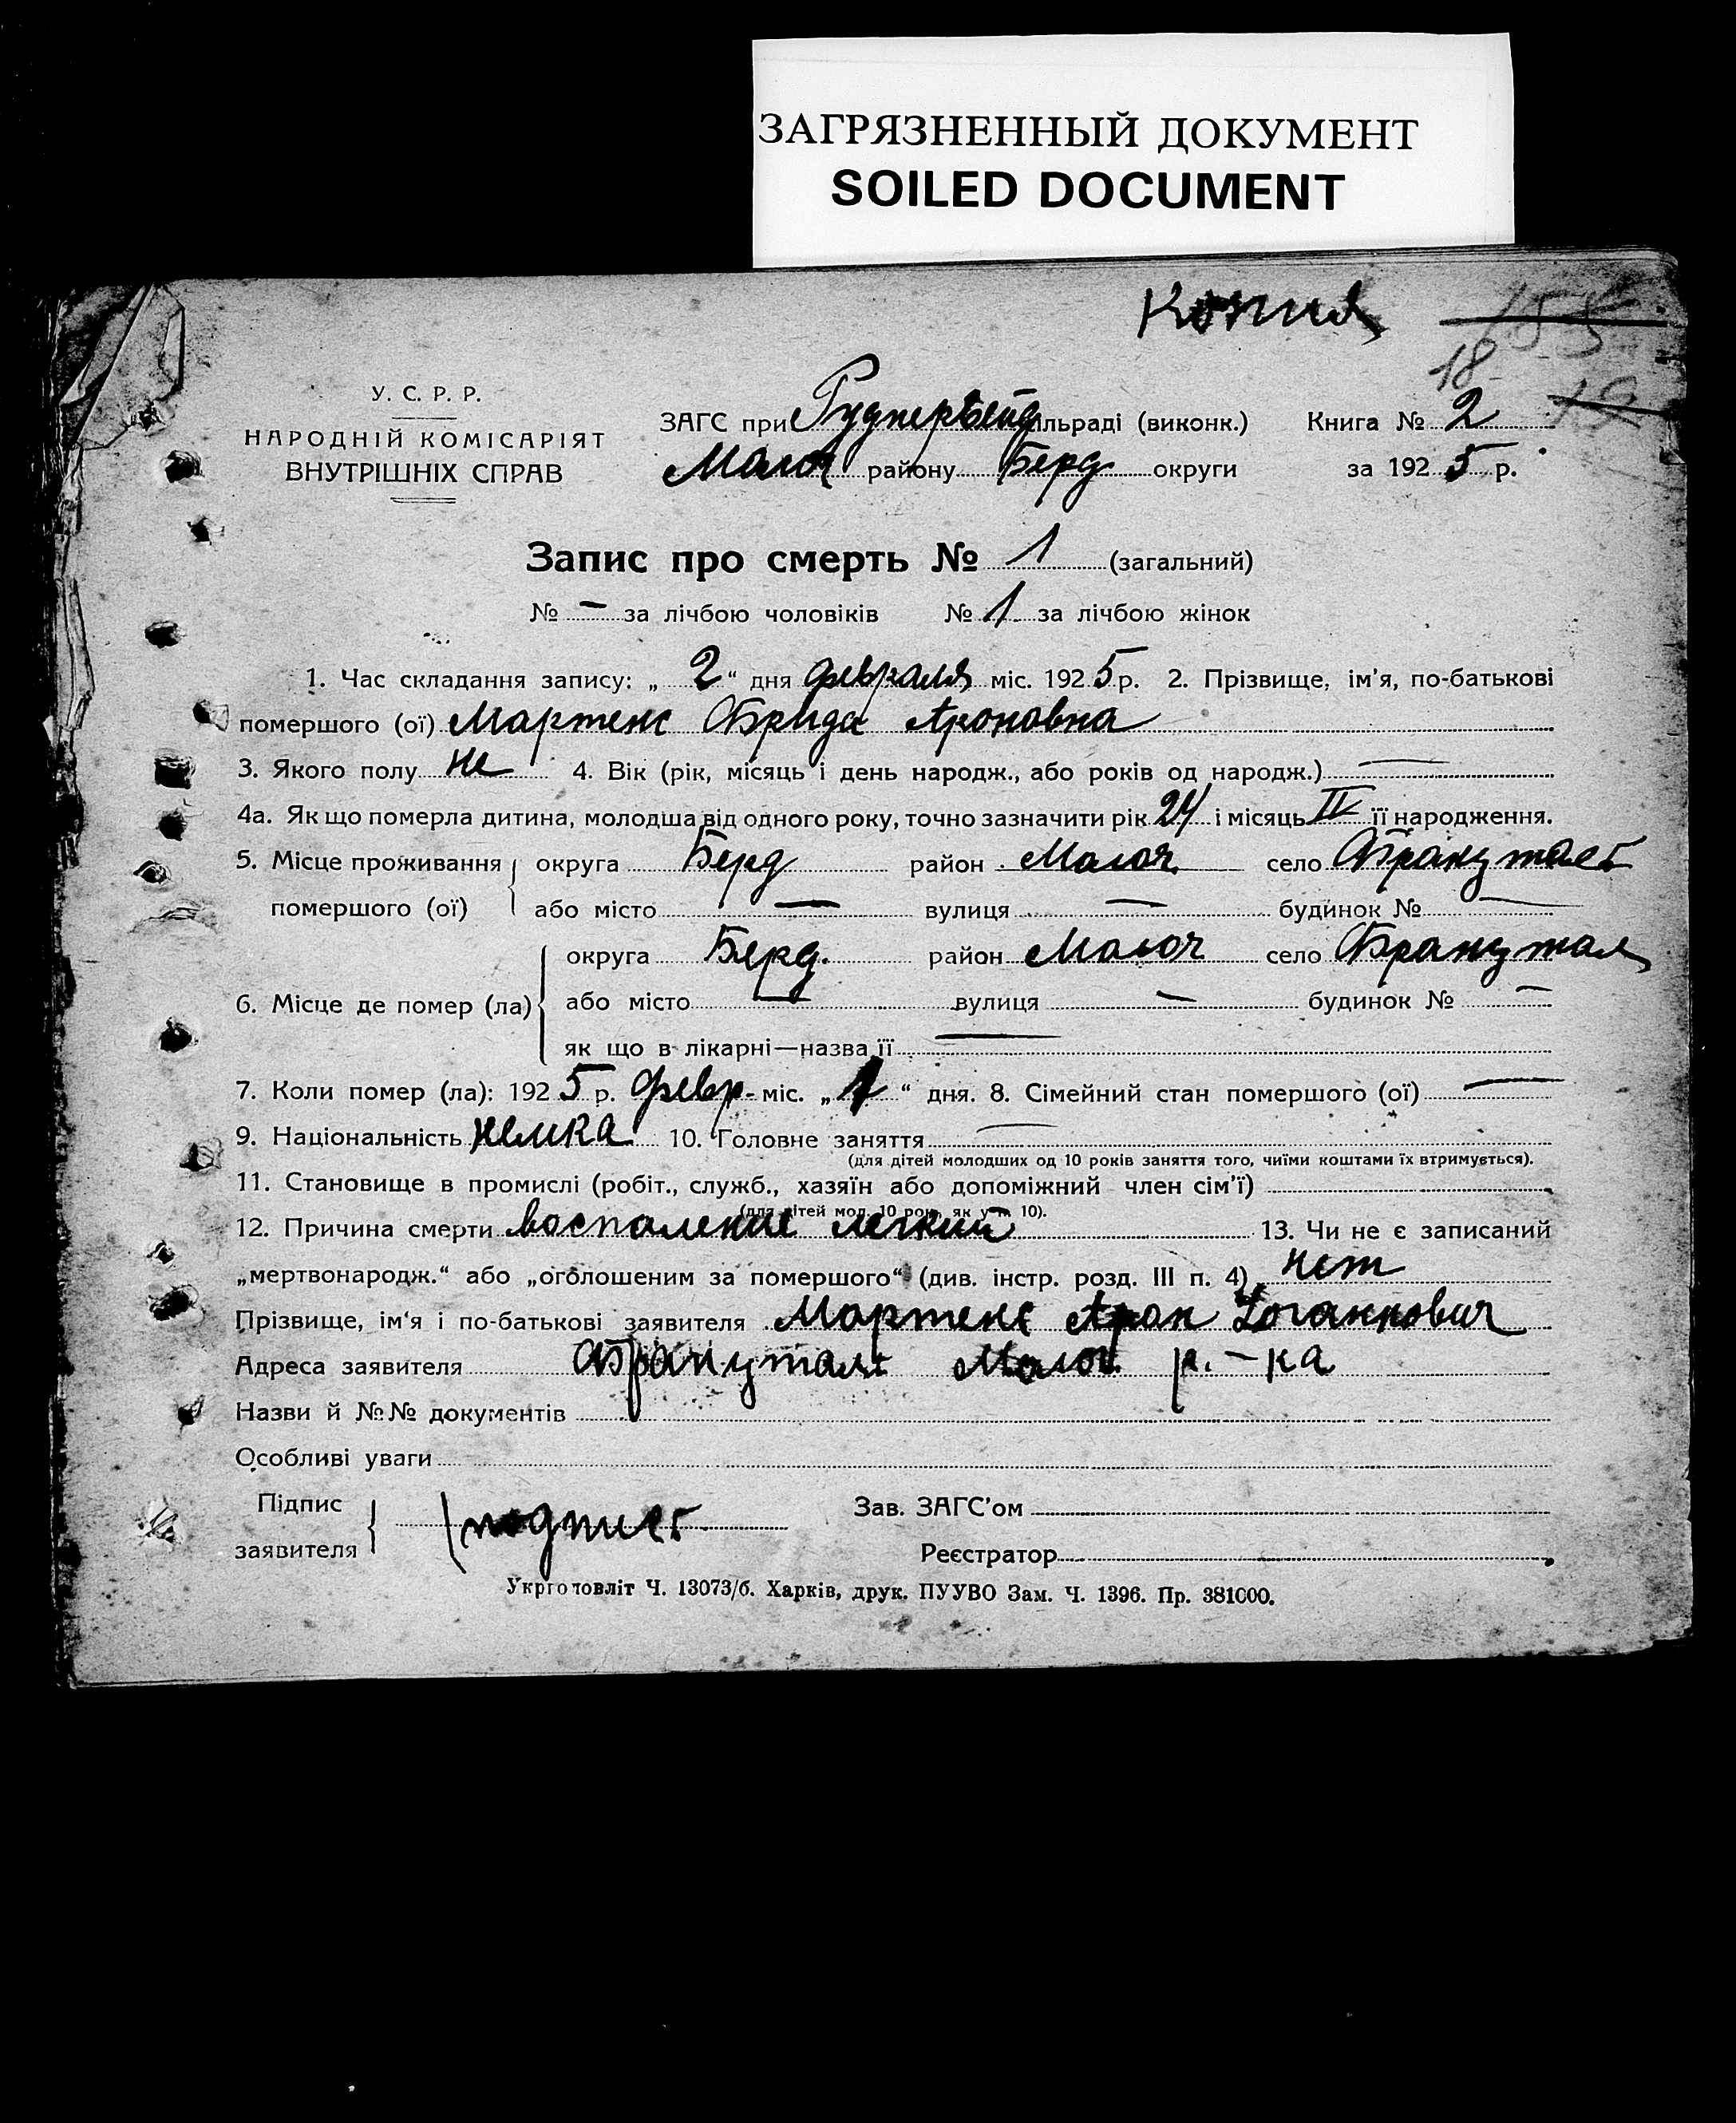 ЗАГРЯЗНЕННЫЙ ДОКУМЕНТ
SOILED DOCUMENT
Копия
18
У. С. Р. Р.
НАРОДНІЙ КОМІСАРІЯТ
ВНУТРІШНІХ СПРАВ
ЗАГС при Руднервейд ільраді (виконк.) Книга № 2
Молоч району Берд округи за 1925 р.
Запис про смерть № 1 (загальний)
№ — за лічбою чоловіків № 1 за лічбою жінок
1. Час складання запису: „ 2 “ дня февраля міс. 1925 р. 2. Прізвище, ім'я, по-батькові
помершого (ої) Мартенс Фрида Ароновна
3. Якого полу же 4. Вік (рік, місяць і день народж., або років од народж.) —
4а. Якщо померла дитина, молодша від одного року, точно зазначити рік 24 і місяць IV її народження.
5. Місце проживання помершого (ої) округа Берд район Молоч село Францталь
або місто — вулиця — будинок № —
6. Місце де помер (ла) округа Берд. район Молоч село Францтал
або місто — вулиця — будинок № —
як що в лікарні—назва її —
7. Коли помер (ла): 1925 р. февр. міс. „ 1 “ дня. 8. Сімейний стан помершого (ої) —
9. Національність немка 10. Головне заняття —
(для дітей молодших од 10 років заняття того, чиїми коштами їх втримується).
11. Становище в промислі (робіт., служб., хазяїн або допоміжний член сім'ї)
(для дітей мол. 10 рок., як у п. 10).
12. Причина смерти воспаление легкий 13. Чи не є записаний
„мертвонародж.“ або „оголошеним за помершого“ (див. інстр. розд. III п. 4) нет
Прізвище, ім'я і по-батькові заявителя Мартенс Арон Іоганнович
Адреса заявителя Францталь Молоч. р.-ка
Назви й №№ документів
Особливі уваги
Підпис заявителя подпись Зав. ЗАГС'ом
Реєстратор
Укрголовліт Ч. 13073/б. Харків, друк. ПУУВО Зам. Ч. 1396. Пр. 381000.